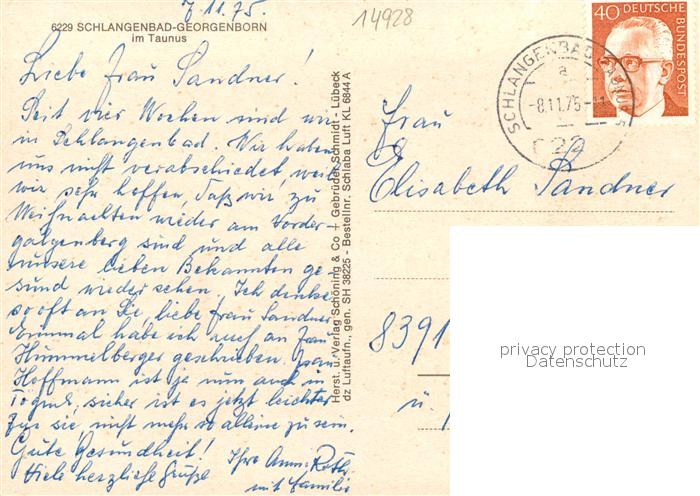 7.11.75.
14928
6229 SCHLANGENBAD-GEORGENBORN
im Taunus
Liebe Frau Sandner!
Seit vier Wochen sind wir
in Schlangenbad. Wir haben
uns nicht verabschiedet, weil
wir sehr hoffen, daß wir zu
Weihnachten wieder am Vorder-
galgenberg sind und alle
unsere lieben Bekannten ge-
sund wiedersehen. Ich denke
so oft an Sie, liebe Frau Sandner.
Einmal habe ich auch an Frau
Hummelberger geschrieben. Frau
Hoffmann ist ja nun auch in
sicher ist es jetzt leichter
für sie, nicht mehr so alleine zu sein.
Gute Gesundheit!
Viele herzliche Grüße
Ihre Anni Roth
mit Familie
Herst. u. Verlag Schöning & Co + Gebrüder Schmidt - Lübeck
dz Luftaufn., gen. SH 38225 - Bestellnr. Schlaba Luft KL 6844 A
40 DEUTSCHE
BUNDESPOST
SCHLANGENBAD
a
-8.11.75-11
Frau
Elisabeth Sandner
8391
u.
privacy protection
Datenschutz